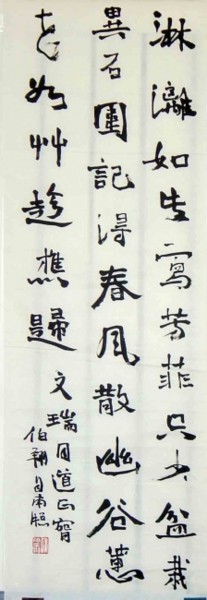 淋灕如生寫芳菲只少盆栽
異石圍記得春風散幽谷蕙
花如艸趁樵歸
文瑞同道正
伯翔